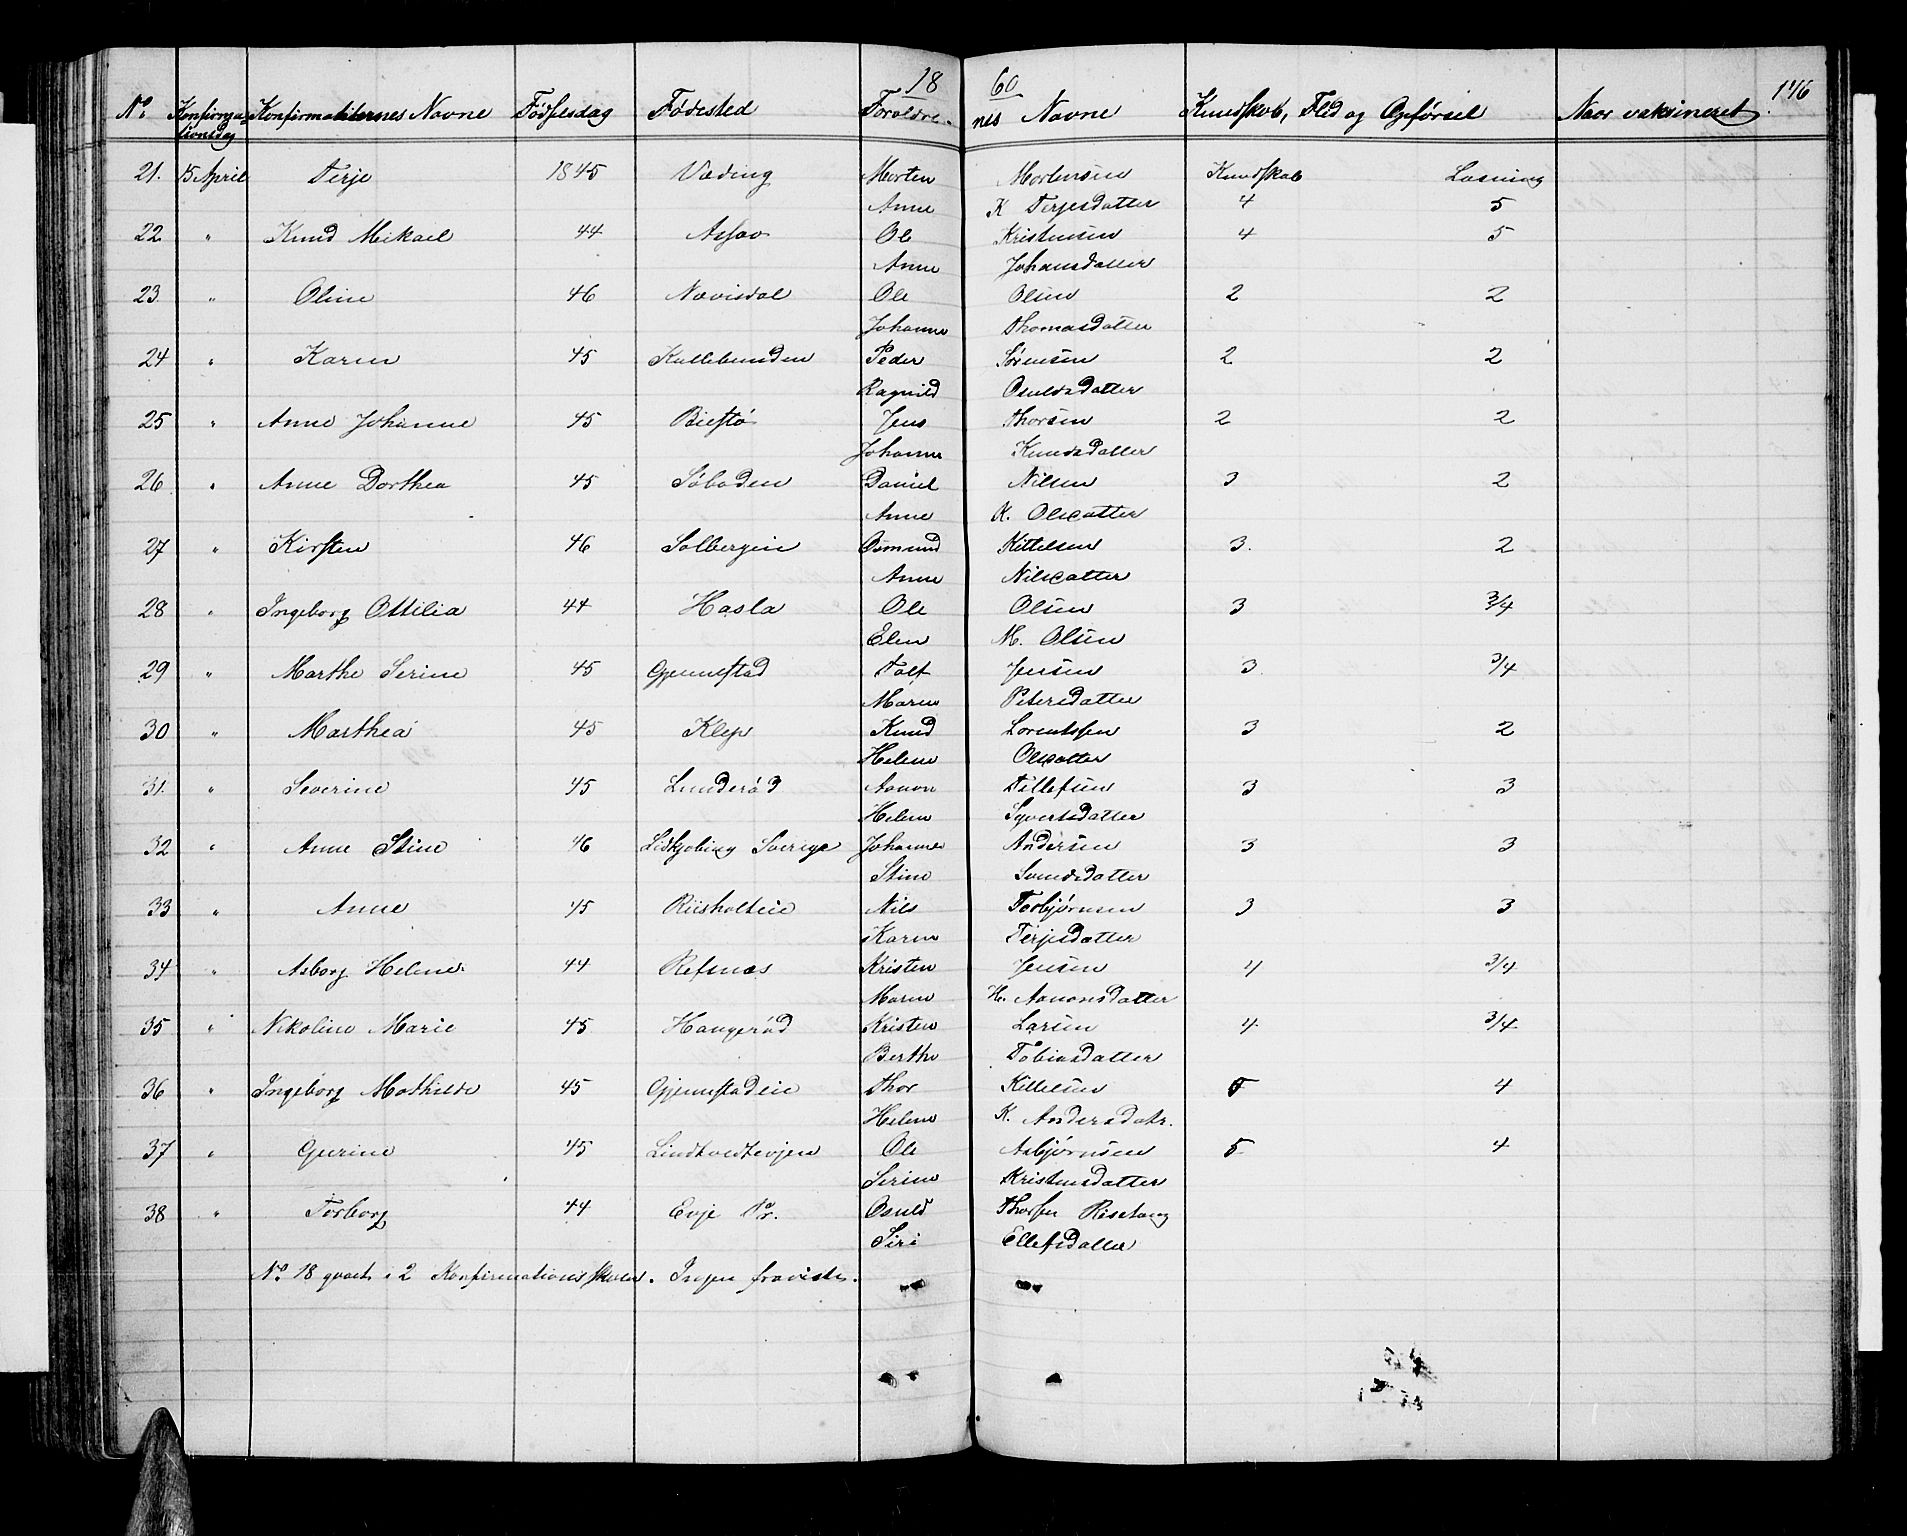 18 60 146
No Konfirma- Konfirmantternes Navne Fødselsdag Fødested Foroldre- nes Navne Kundskob, Flid og Opførsel Naar vaksineret.
tionsdag
21. 15 April Terje 1845 Væding Morten Mortensen Kundskab Læsning
Anne K Terjesdatter 4 5
22 " Knud Mikael 44 Assav Ole Kristensen 4 5
Anne Johansdatter
23 " Oline 46 Nævisdal Ole Olsen 2 2
Johanne Thomasdatter
24 " Karen 45 Kallebunden Peder Sørensen 2 2
Ragnild Osuldsdatter
25 " Anne Johanne 45 Biestø Jens Thorsen 2 2
Johanne Knudsdatter
26 " Anne Dorthea 45 Søboden Daniel Nilsen 3 2
Anne K. Olsdatter
27 " Kirsten 46 Solbergeie Osmund Kittelsen 3. 2
Anne Nilsdatter
28 " Ingeborg Ottilia 44 Hasla Ole Olsen 3 3/4
Elen M. Olsen
29 " Marthe Serine 45 Gjennestad Talf Jensen 3 3/4
Maren Petersdatter
30 " Marthea 45 Klep Knud Lorentssen 3 2
Helene Olsdatter
31. " Severine 45 Lunderød Aanon Tellefsen 3 3
Helene Syvertsdatter
32 " Anne Stine 46 Lidkjobing Sverige Johannes Andersen 3 3
Stine Svendsdatter
33 " Anne 45 Riisholteie Nils Torbjørnsen 3 3
Karen Terjesdatter
34 " Asborg Helene 44 Refsnæs Kristen Jensen 4 3/4
Maren H. Aanonsdatter
35 " Nikoline Marie 45 Haugerød Kristen Larsen 4 3/4
Berthe Tobiasdatter
36 " Ingeborg Mathilde 45 Gjennestadeie Thor Kittelsen 5 4
Helene K. Andersdatr.
37 " Gurine 45 Lindtvedtevjen Ole Asbjørnsen 5 4
Serine Kristensdatter
38 " Torborg 44 Evje Pr. Osuld Thorsen
Siri Ellefsdatter
No 18 i 2 Konfirmationsskoler. Ingen fraviste.